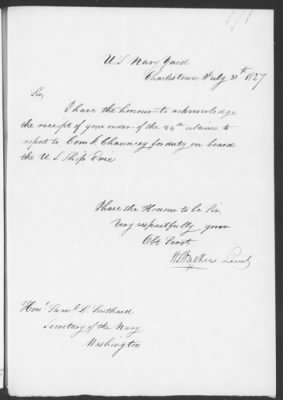 U.S. Navy Yard
Charlestown July 30th 1827
Sir,
I have the honour to acknowledge
the receipt of your order of the 24th ultimo to
report to Com I. Chauncey for duty on board
the U S Ship Erie
I have the Honour to be Sir,
Very respectfully your
Obt Servt
Walker Lieut
Honl Saml L Southard
Secretary of the Navy
Washington